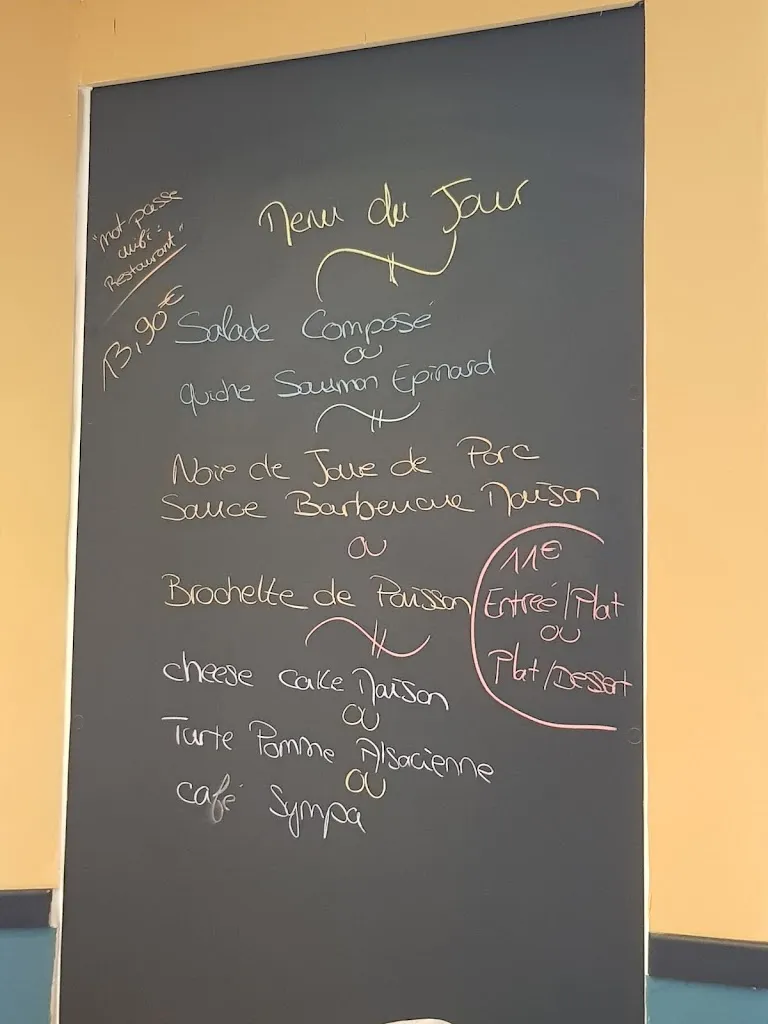 "mot passe
wifi:
Restaurant"
13,90€
Menu du Jour
Salade Composé
ou
quiche Saumon Epinard
Noix de Joue de Porc
Sauce Barbecue Maison
ou
Brochette de Poisson
11€
Entrée/Plat
ou
Plat/Dessert
cheese cake Maison
ou
Tarte Pomme Alsacienne
ou
café Sympa